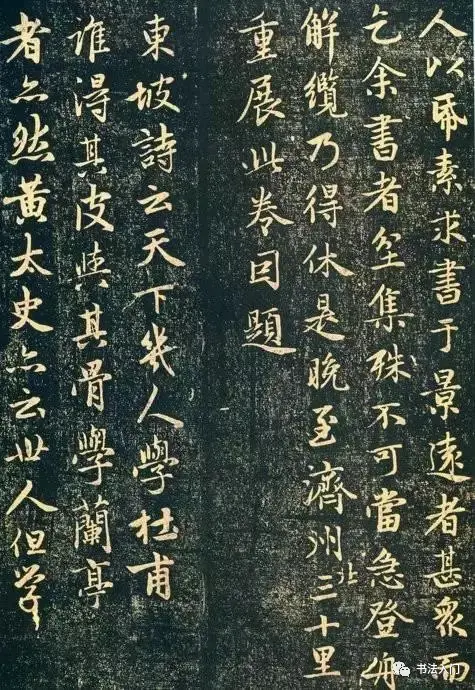 人以帋素求書于景遠者甚衆而
乞余書者坌集殊不可當急登舟
解纜乃得休是晚至濟州北三十里
重展此卷因題
東坡詩云天下幾人學杜甫
誰得其皮與其骨學蘭亭
者亦然黄太史亦云世人但學
书法大门